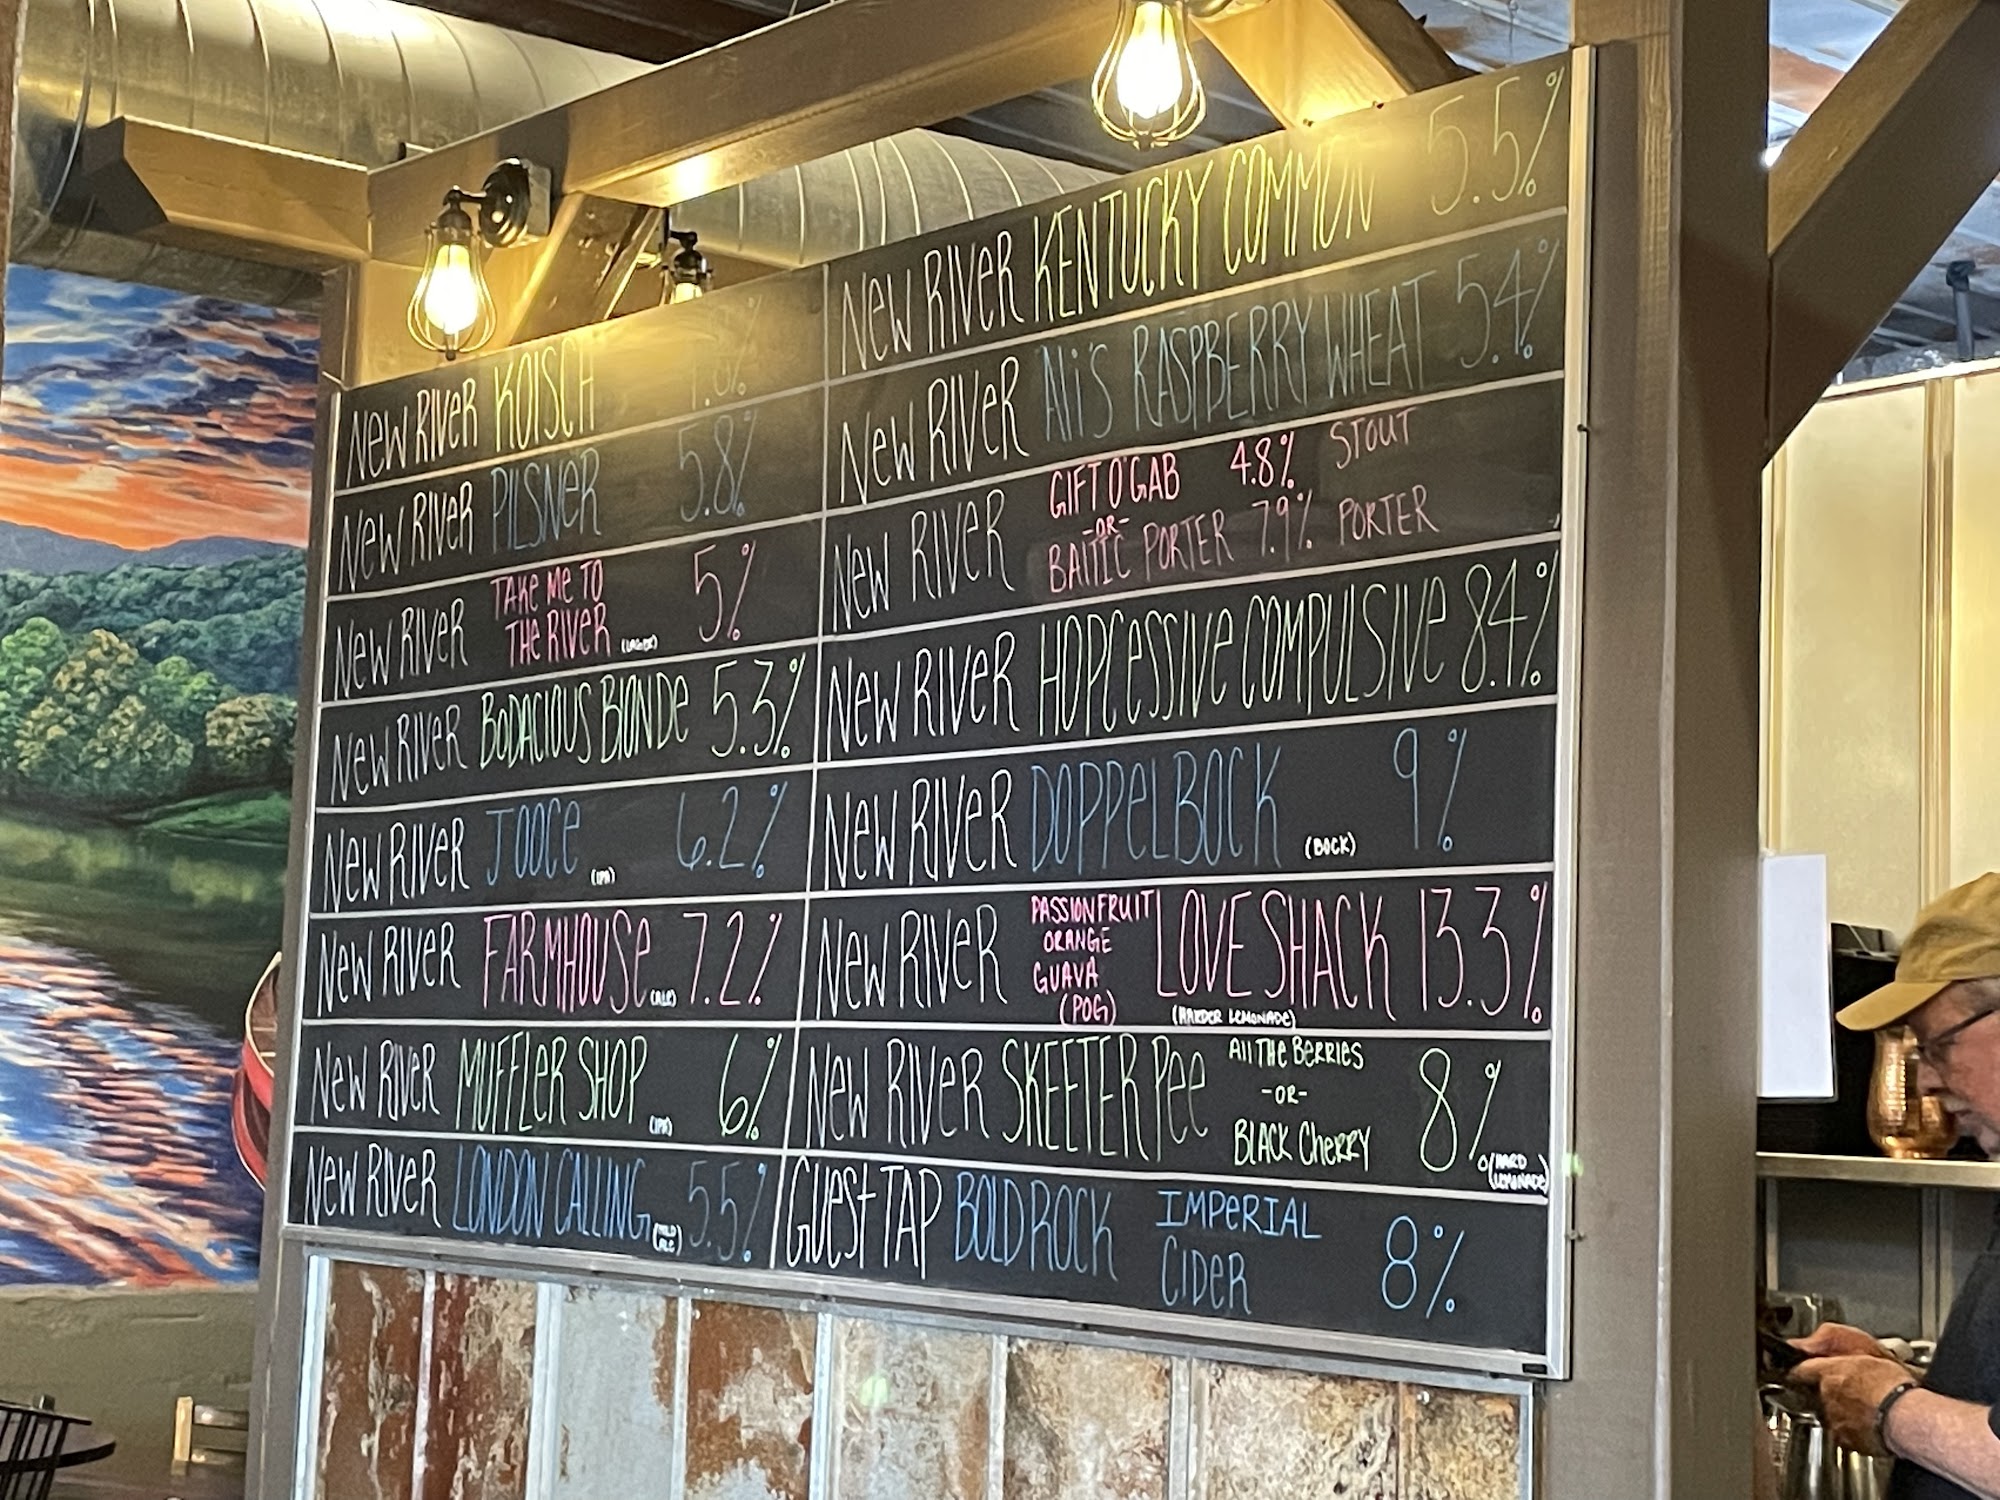 New River KOISCH
New River PILSNeR 5.8%
New River TAKe Me TO
THE RIVER (LAGER) 5%
New River BODACIOUS BlONDe 5.3%
New River JOOCe (IPA) 6.2%
New River FARMHOUSe (ALE) 7.2%
New River MUFFLeR SHOP (IPA) 6%
New River LONDON CALLING (MILD ALE) 5.5%
New River KENTUCKY COMMON 5.5%
New River Ali'S RASPBERRY WHEAT 5.4%
New River GIFT O'GAB 4.8% STOUT
-OR-
BAlTIC PORTER 7.9% PORTER
New River HOPCeSSIVe COMPULSIVe 8.4%
New River DOPPelBOCK (BOCK) 9%
New River PASSIONFRUIT
ORANGE
GUAVA
(POG)
LOVE SHACK 13.3%
(HARDER LEMONADE)
New River SKEETER Pee All THe BeRRIES
-OR-
BLACK CHeRRY
8%
(HARD
LEMONADE)
GUesT TAP BOLD ROCK IMPeRIAL
CIDeR 8%